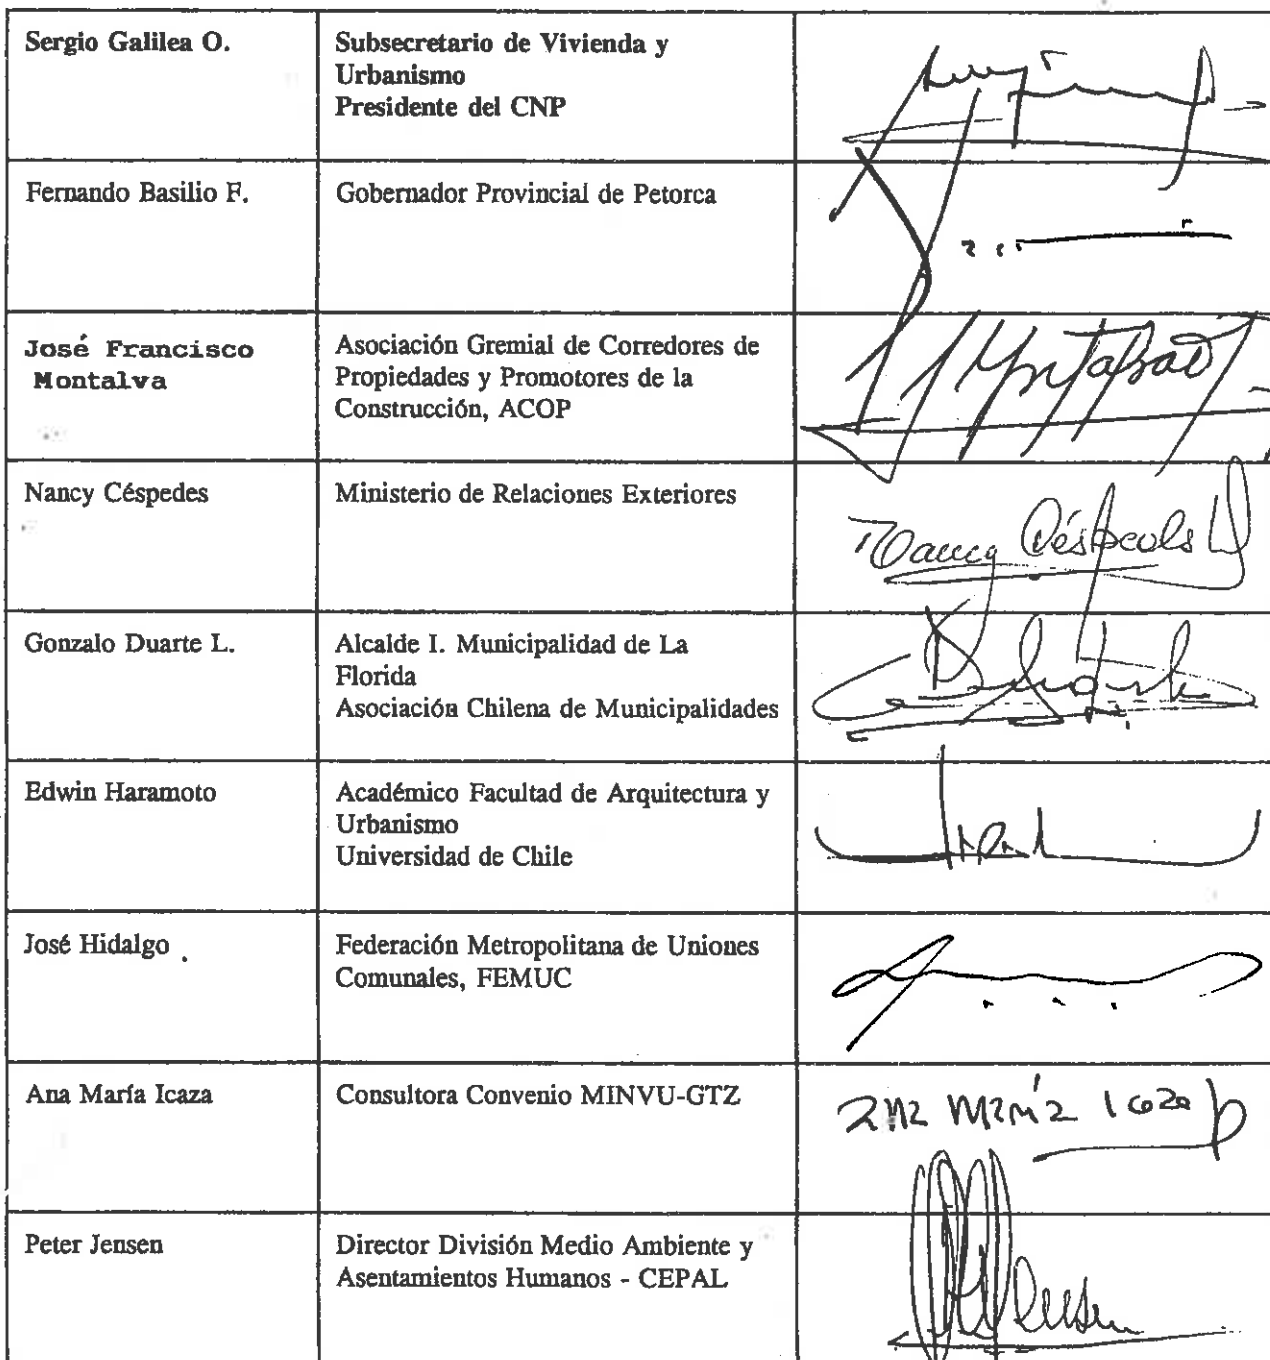 Sergio Galilea O.
Subsecretario de Vivienda y
Urbanismo
Presidente del CNP
Fernando Basilio F.
Gobernador Provincial de Petorca
José Francisco
Montalva
Asociación Gremial de Corredores de
Propiedades y Promotores de la
Construcción, ACOP
Nancy Céspedes
Ministerio de Relaciones Exteriores
Nancy Céspedes
Gonzalo Duarte L.
Alcalde I. Municipalidad de La
Florida
Asociación Chilena de Municipalidades
Edwin Haramoto
Académico Facultad de Arquitectura y
Urbanismo
Universidad de Chile
José Hidalgo
Federación Metropolitana de Uniones
Comunales, FEMUC
Ana María Icaza
Consultora Convenio MINVU-GTZ
Ana María Icaza
Peter Jensen
Director División Medio Ambiente y
Asentamientos Humanos - CEPAL